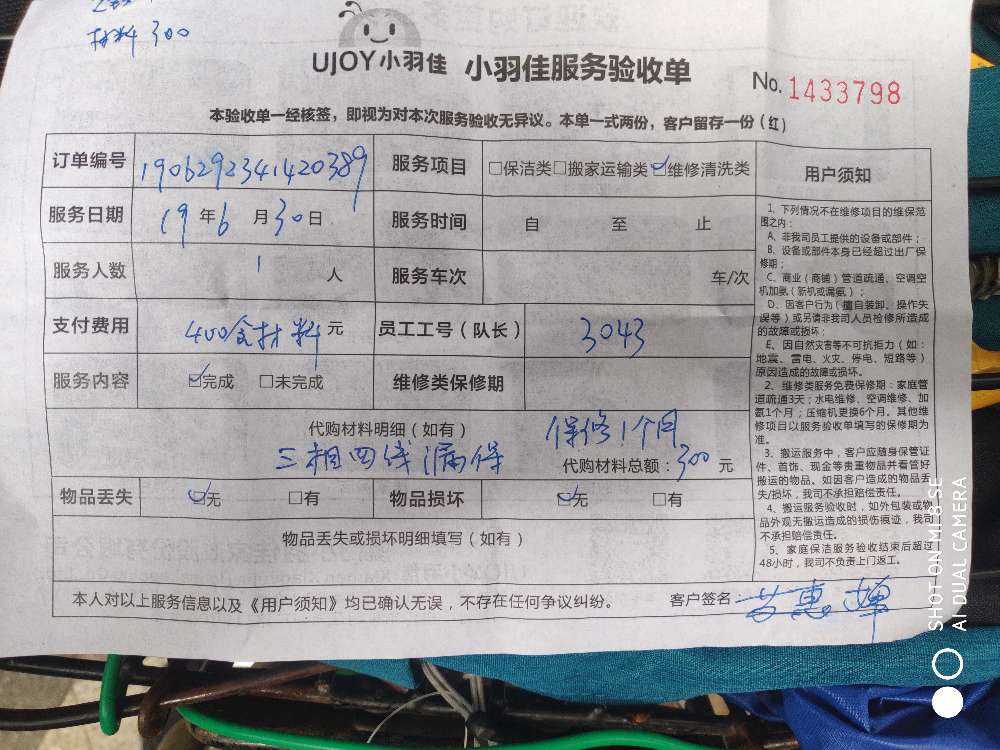 材料 300
UJOY小羽佳 小羽佳服务验收单
No. 1433798
本验收单一经核签，即视为对本次服务验收无异议。本单一式两份，客户留存一份（红）
订单编号 1906292341420389 服务项目 □保洁类□搬家运输类☑维修清洗类
服务日期 19年6月30日 服务时间 自 至 止
服务人数 1 人 服务车次 车/次
支付费用 400含材料元 员工工号（队长） 3043
服务内容 ☑完成 □未完成 维修类保修期
代购材料明细（如有） 保修1个月
三相四线漏保 代购材料总额：300元
物品丢失 ☑无 □有 物品损坏 ☑无 □有
物品丢失或损坏明细填写（如有）
本人对以上服务信息以及《用户须知》均已确认无误，不存在任何争议纠纷。 客户签名：
用户须知
1、下列情况不在维修项目的维保范
围之内：
A、非我司员工提供的设备或部件；
B、设备或部件本身已经超过出厂保
修期；
C、商业（商铺）管道疏通、空调空
机加氨（新机或漏氨）；
D、因客户行为（擅自装卸、操作失
误等）或另请非我司人员检修所造成
的故障或损坏；
E、因自然灾害等不可抗拒力（如：
地震、雷电、火灾、停电、短路等）
原因造成的故障或损坏。
2、维修类服务免费保修期：家庭管
道疏通3天；水电维修、空调维修、加
氨1个月；压缩机更换6个月。其他维
修项目以服务验收单填写的保修期为
准。
3、搬运服务中，客户应随身保管证
件、首饰、现金等贵重物品并看管好
搬运的物品。如因客户造成的物品丢
失/损坏，我司不承担赔偿责任。
4、搬运服务验收时，如外包装或物
品外观无搬运造成的损伤痕迹，我司
不承担赔偿责任。
5、家庭保洁服务验收结束后超过
48小时，我司不负责上门返工。
SHOT ON MI 8 SE
AI DUAL CAMERA